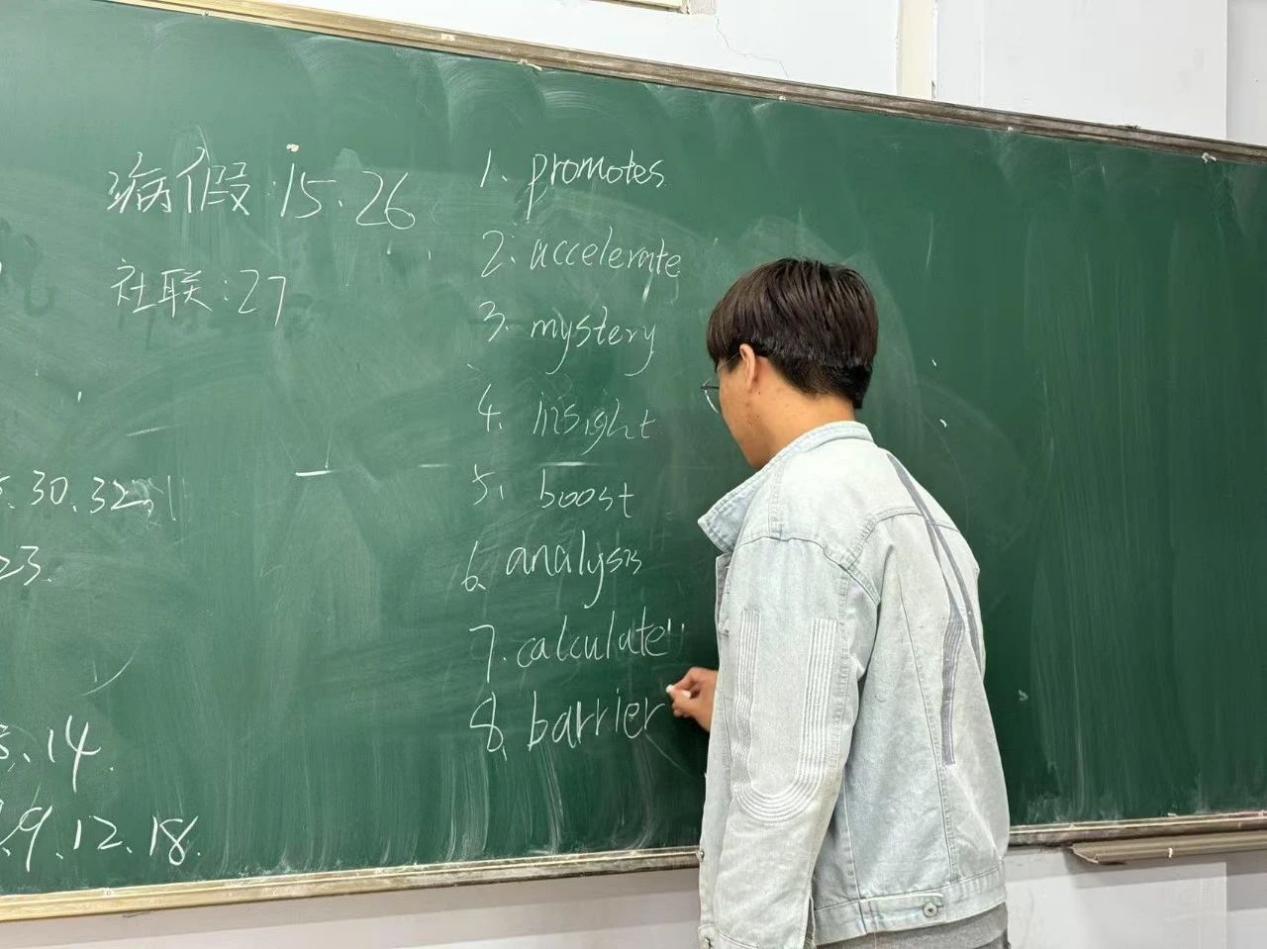 病假:15、26
社联:27
30.32
23.
、14.
9、12、18.
1. promotes
2. accelerate
3. mystery
4. insight
5. boost
6. analysis
7. calculate
8. barrier